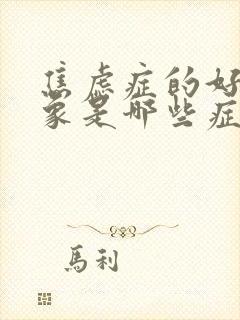 焦虑症的好
象是哪些症
馬利